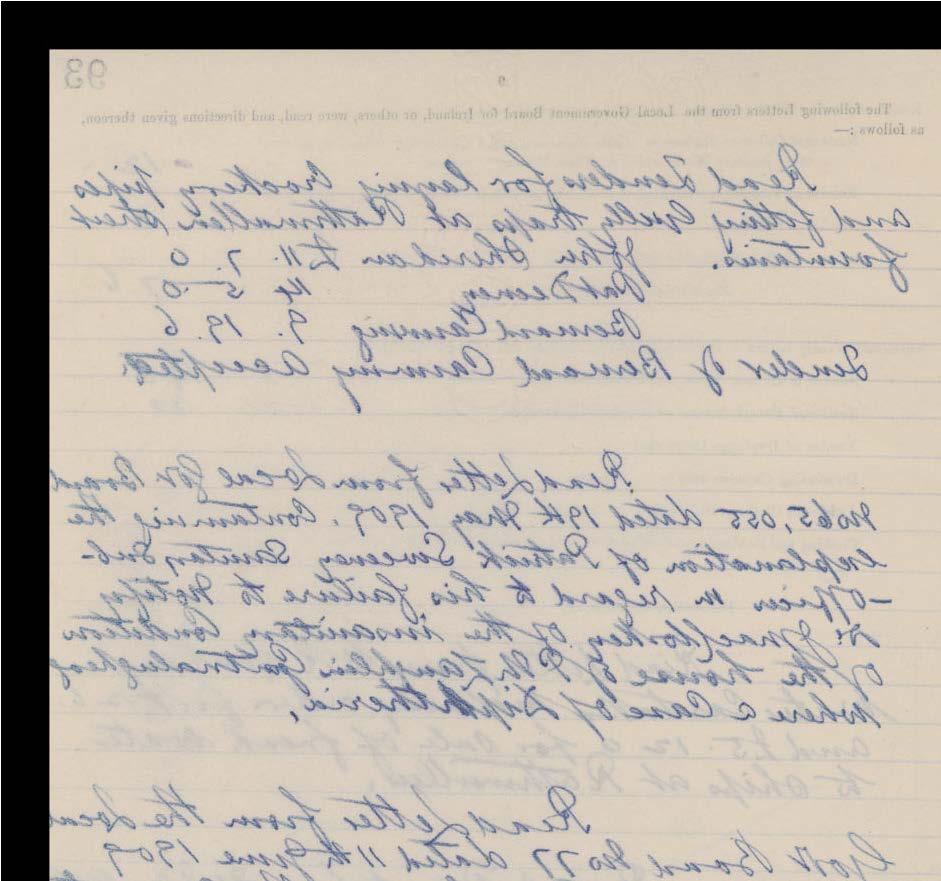 93
9
The following Letters from the Local Government Board for Ireland, or others, were read, and directions given thereon,
as follows :—
Read Tenders for laying Crockery pipes
and fitting Gully traps at Rathmullan Street
fountains.
John Sheridan £11. 7. 0
Pat Deeney 14 5 0
Bernard Canning 9. 19. 6
Tender of Bernard Canning accepted
Read Letter from Local Gov Board
No 65,055 dated 19th May 1909. Containing the
explanation of Patrick Sweeney Sanitary Sub-
-officer in regard to his failure to Notify
Dr. of the insanitary Condition
of the house of McLaughlin
where a Case of Diphtheria,
and £5. 12 for only of
to Ships at Rathmullan
Read Letter from the Local
Govt Board No 77 dated 11th June 1909